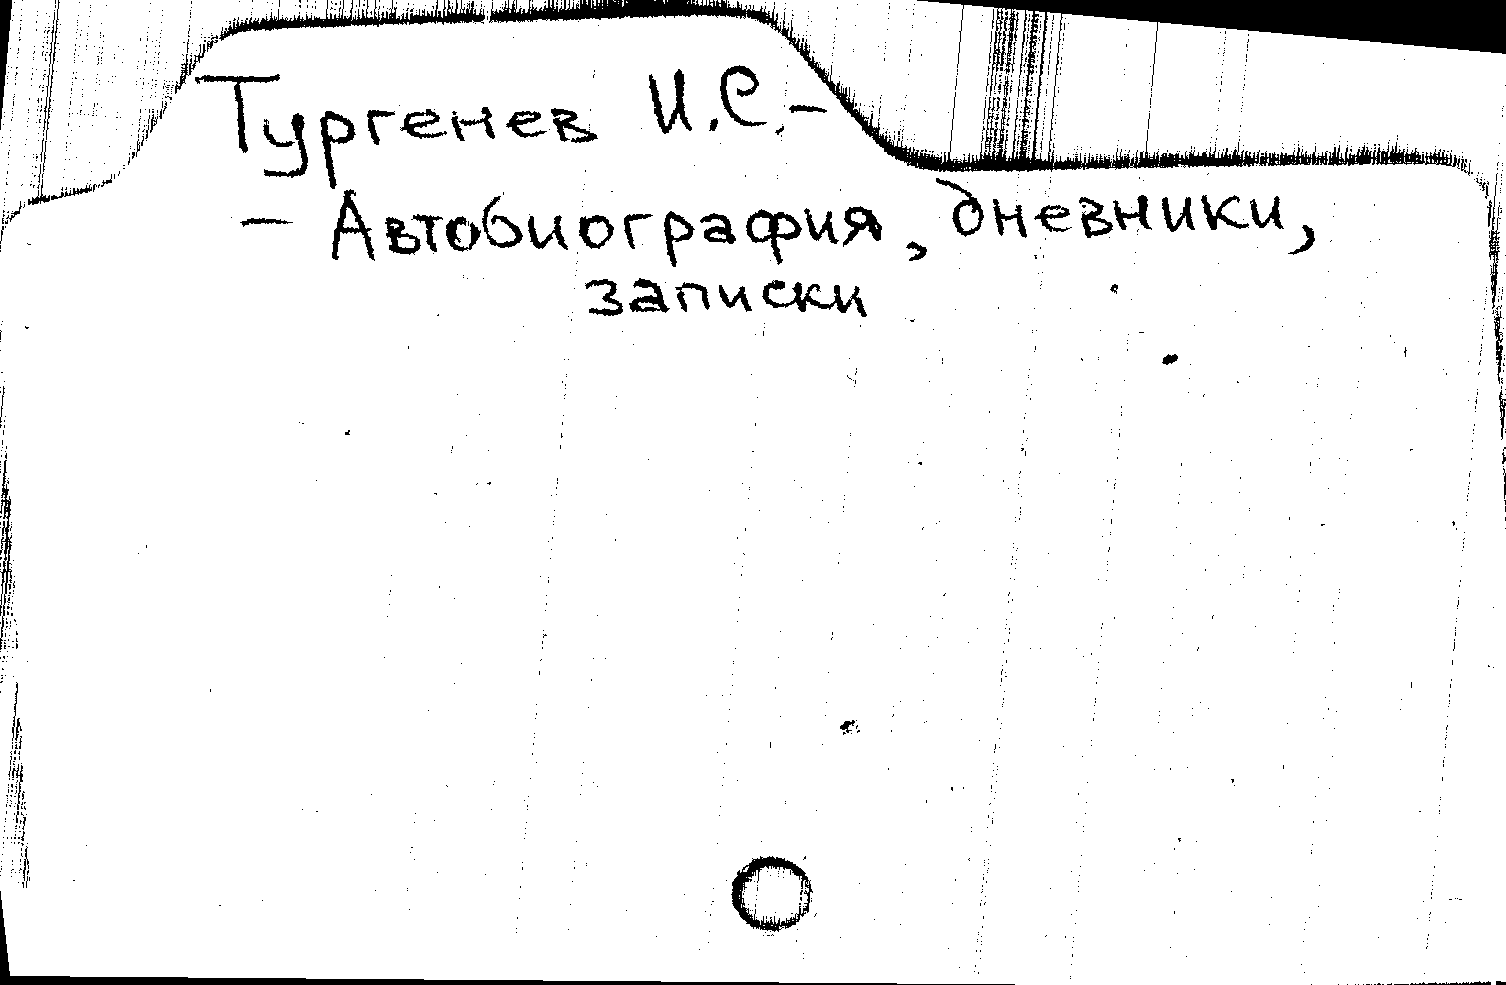 Тургенев И.С.-
- Автобиография, дневники,
записки